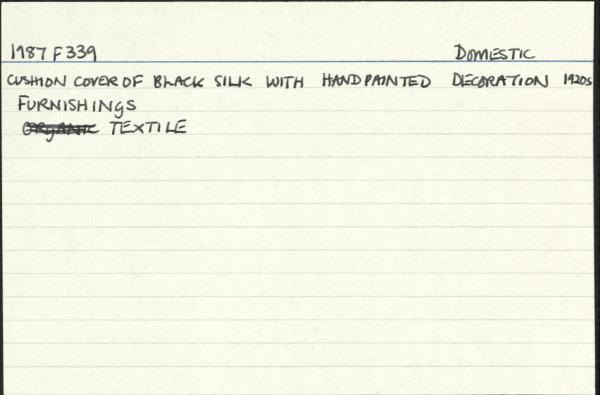 1987 F339 DOMESTIC
CUSHION COVER OF BLACK SILK WITH HANDPAINTED DECORATION 1920s
FURNISHINGS
ORGANIC TEXTILE